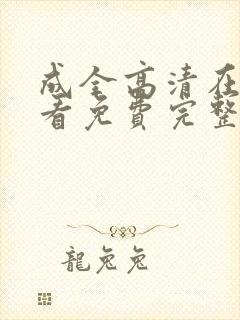 成全高清在
看免费完整
龍兔兔